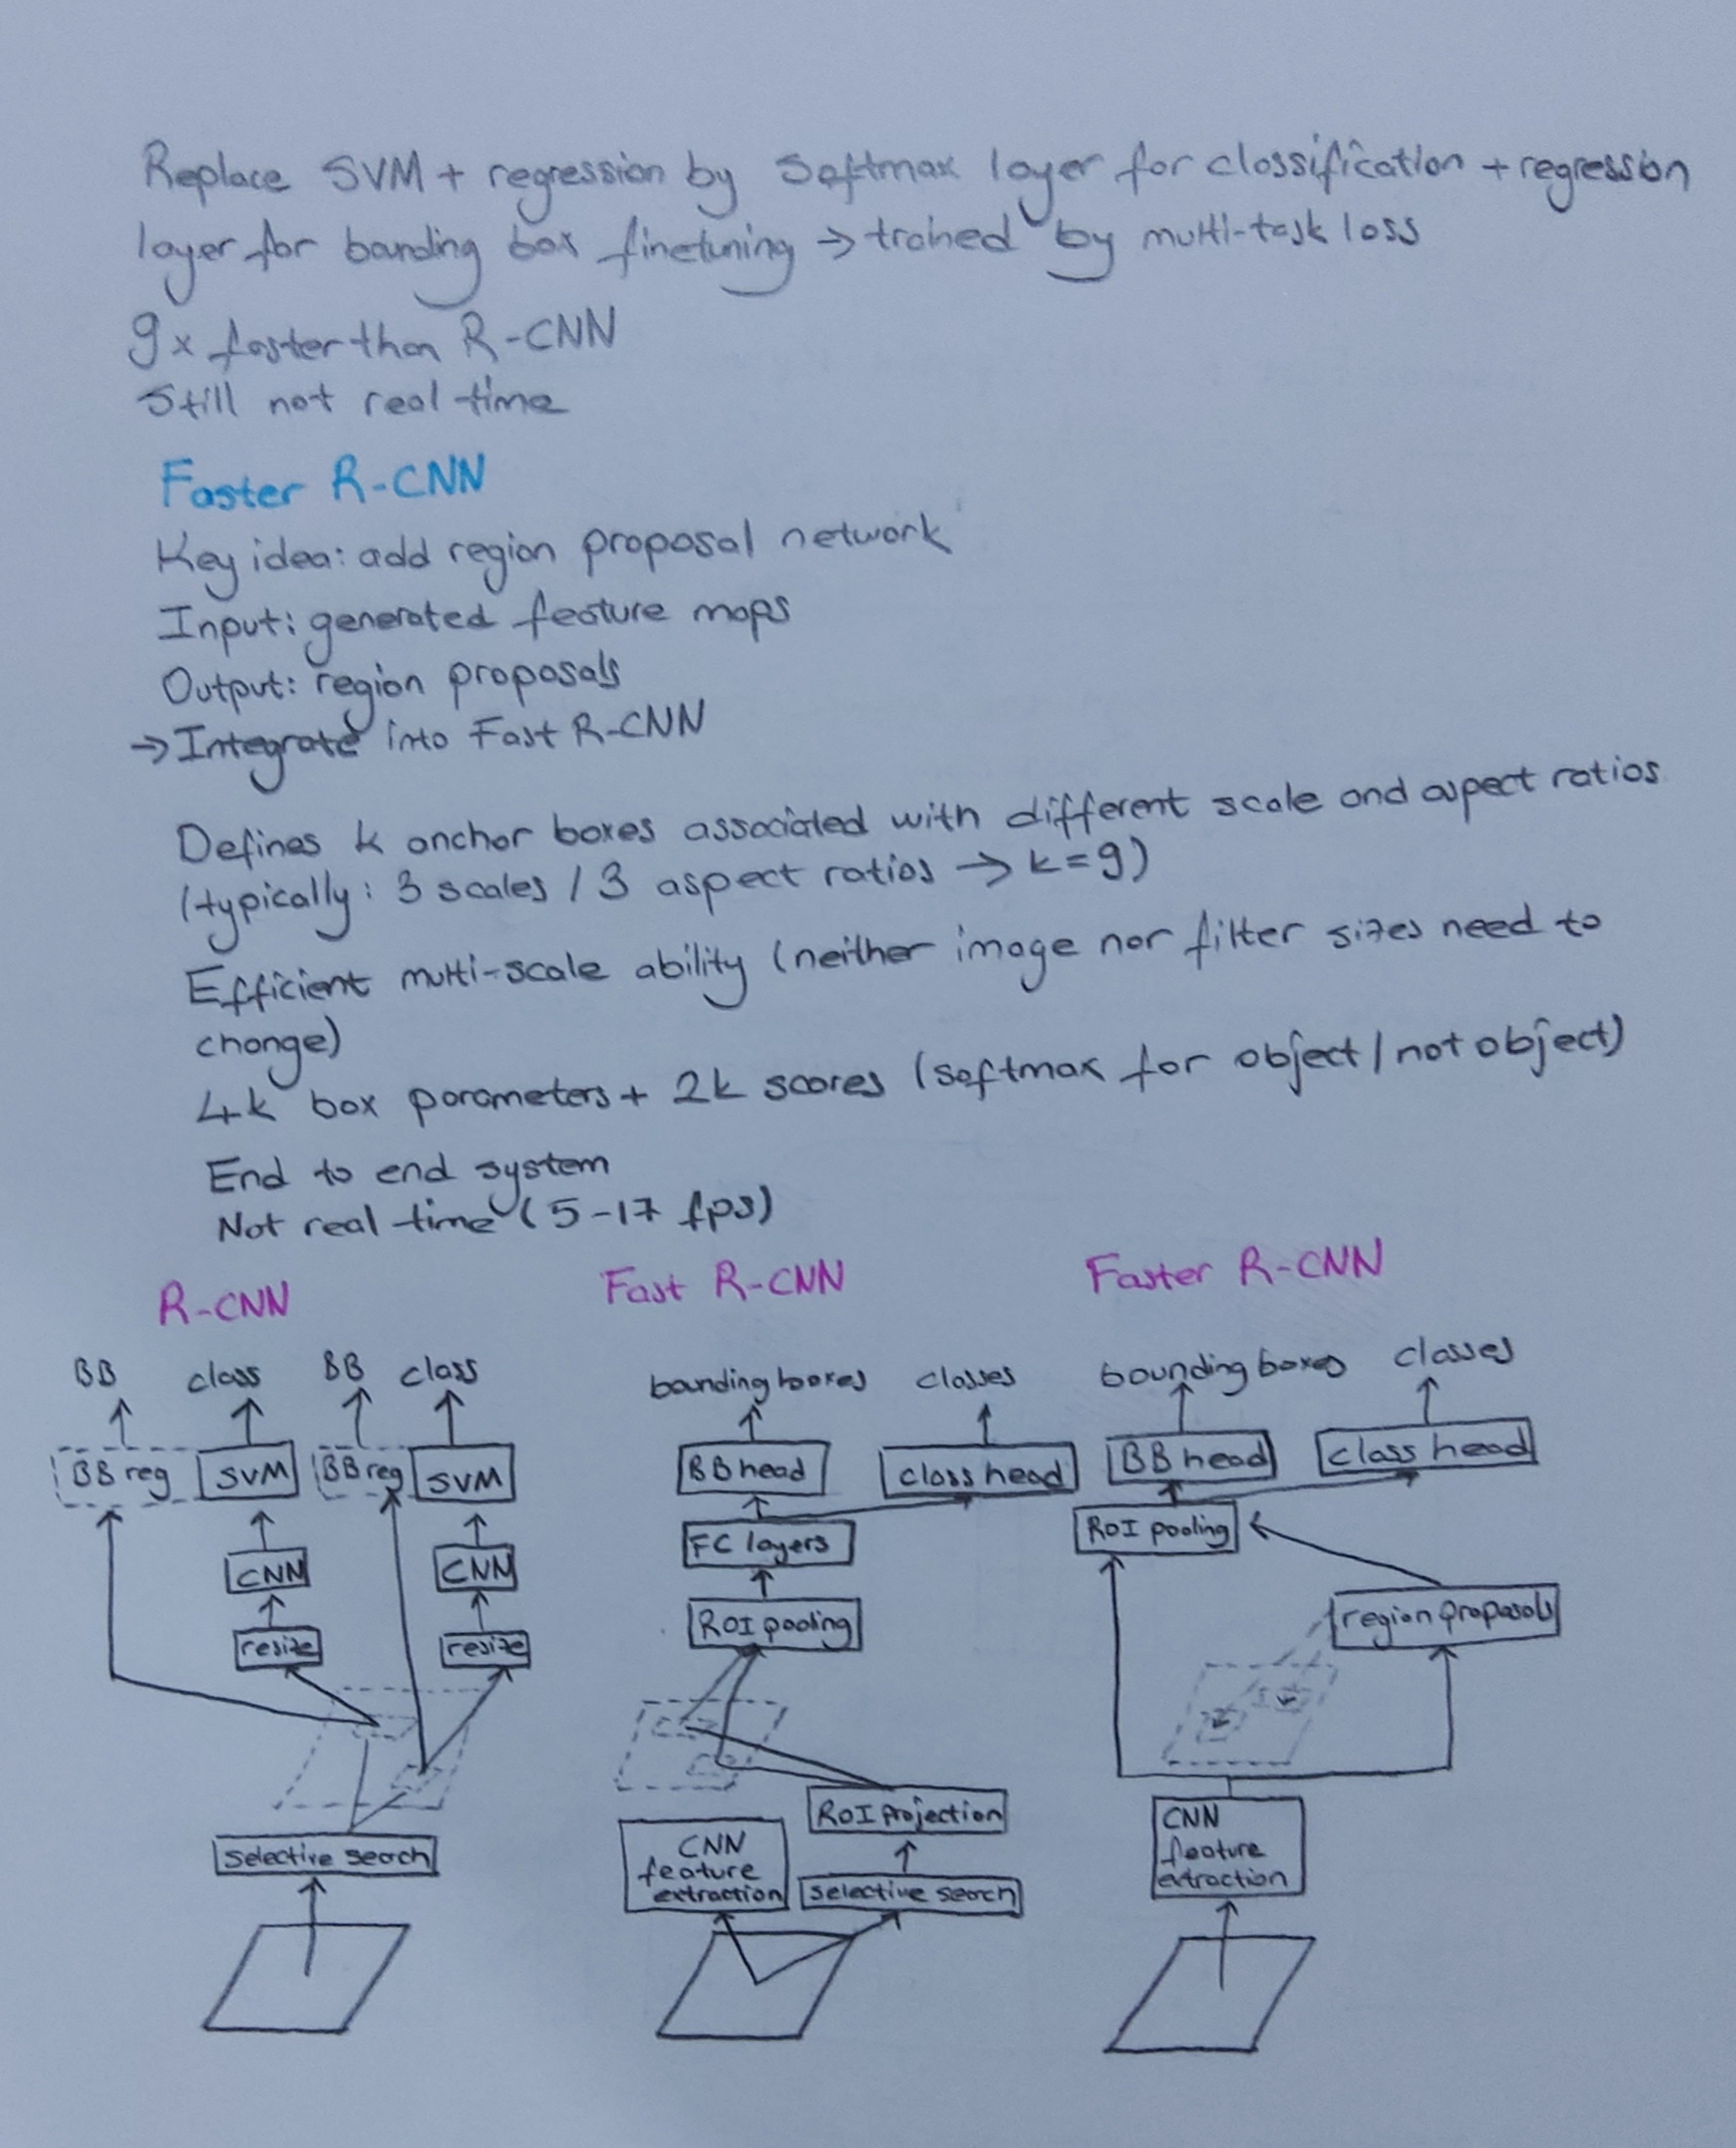 Replace SVM + regression by Softmax layer for classification + regression
layer for bounding box finetuning → trained by multi-task loss
9x faster than R-CNN
Still not real time
Faster R-CNN
Key idea: add region proposal network
Input: generated feature maps
Output: region proposals
→ Integrate into Fast R-CNN
Defines k anchor boxes associated with different scale and aspect ratios
(typically: 3 scales / 3 aspect ratios → k=9)
Efficient multi-scale ability (neither image nor filter sizes need to
change)
4k box parameters + 2k scores (softmax for object / not object)
End to end system
Not real time (5-17 fps)
R-CNN
BB class BB class
BB reg SVM BB reg SVM
CNN CNN
resize resize
selective search
Fast R-CNN
bounding boxes classes
BB head class head
FC layers
ROI pooling
ROI projection
CNN
feature
extraction
selective search
Faster R-CNN
bounding boxes classes
BB head class head
ROI pooling
region proposals
CNN
feature
extraction